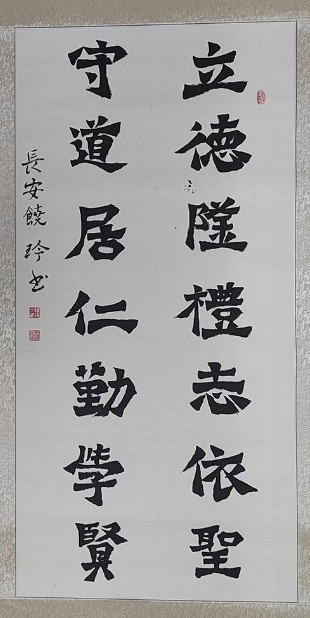 立德隆禮志依聖
守道居仁勤學賢
長安饒玲書